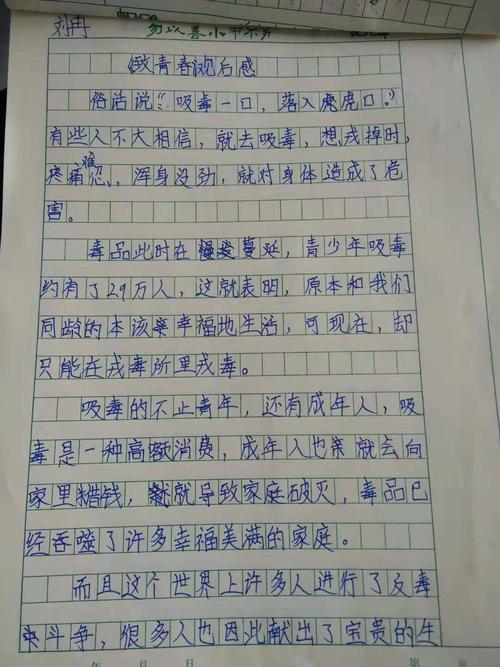 刘冉
《致青春》观后感
俗话说:“吸毒一口，落入虎口。”
有些人不大相信，就去吸毒，想戎掉时，
疼痛难忍，浑身没劲，就对身体造成了危
害。
毒品此时在蔓延，青少年吸毒
约有了29万人，这就表明，原本和我们
同龄的本该幸福地生活，可现在，却
只能在戎毒所里戎毒。
吸毒的不止青年，还有成年人，吸
毒是一种高额消费，成年人也就会向
家里借钱，就导致家庭破灭，毒品已
经吞噬了许多幸福美满的家庭。
而且这个世界上许多人进行了反毒
斗争，很多人也因此献出了宝贵的生
年 月 日 第 页